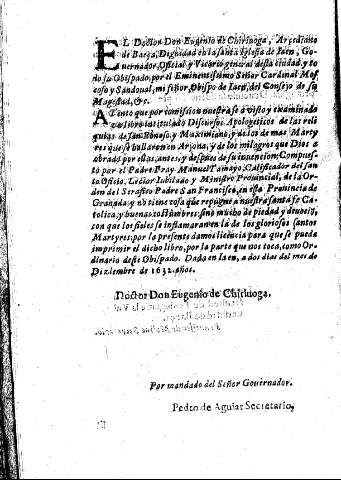 EL Doctor Don Eugenio de Chiriuoga, Arcediano
de Baeça, Dignidad en la santa Iglesia de Iaen, Go-
uernador, Oficial y Vicario general desta ciudad, y to-
do su Obispado, por el Eminentissimo Señor Cardinal Mos
coso y Sandoual, mi señor, Obispo de Iaen, del Consejo de su
Magestad, &c.
ATento que por comission nuestra se a visto y examinado
vn libro intitulado Discursos Apologeticos de las reli
quias de san Bonoso, y Maximiano, y de los de mas Marty
res que se hallaron en Arjona, y de los milagros que Dios a
obrado por ellas, antes, y despues de su inuencion, Compues-
to por el Padre Fray Manuel Tamayo, Calificador del san
to Oficio, Lector Iubilado, y Ministro Prouincial, de la Or-
den del Serafico Padre San Francisco, en esta Prouincia de
Granada, y no tiene cosa que repugne a nuestra santa fe Ca-
tolica, y buenas costumbres, sino mucho de piedad y deuociõ,
con que los fieles se inflamaran en la de los gloriosos santos
Martyres: por la presente damos licencia para que se pueda
imprimir el dicho libro, por la parte que nos toca, como Or-
dinario deste Obispado. Dada en Iaen, a dos dias del mes de
Diziembre de 1632. años.
Doctor Don Eugenio de Chiriuoga.
Por mandado del Señor Gouernador.
Pedro de Aguiar Secretario,